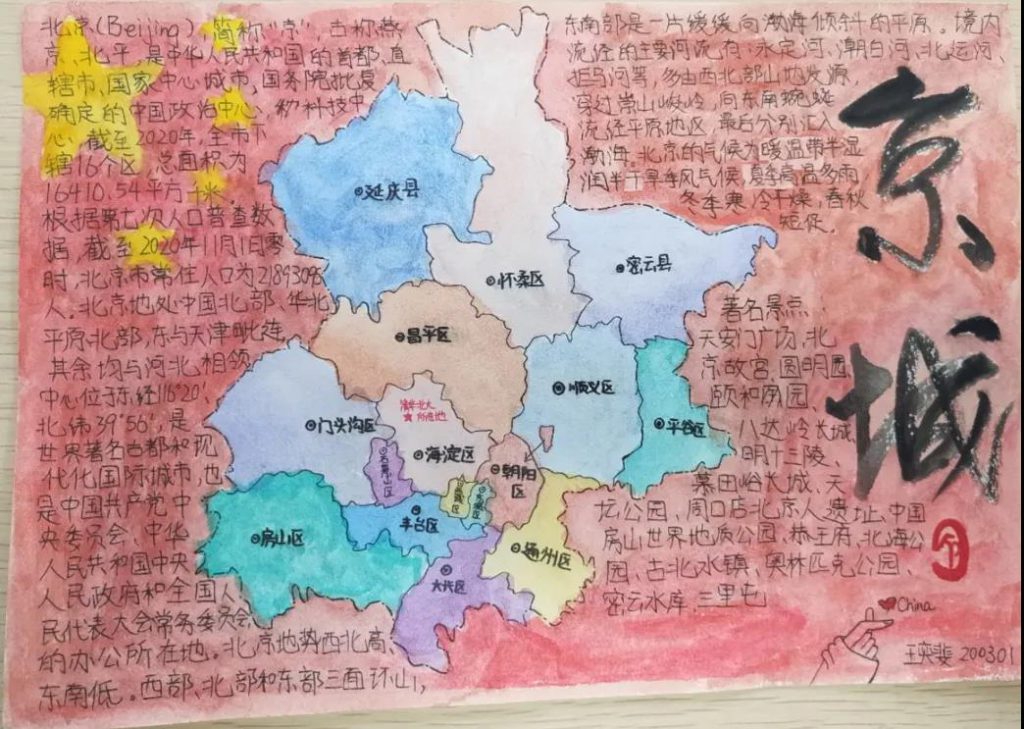 北京(Beijing),简称"京",古称燕
京、北平,是中华人民共和国的首都、直
辖市、国家中心城市,国务院批复
确定的中国政治中心、
科技中
心,截至2020年,全市下
辖16个区,总面积为
16410.54平方千米。
根据第七次人口普查数
据,截至2020年11月1日零
时,北京市常住人口为21893095
人。北京地处中国北部、华北
平原北部,东与天津毗连,
其余均与河北相领
中心位于东经116°20′、
北纬39°56′,是
世界著名古都和现
代化国际城市,也
是中国共产党中
央委员会、中华
人民共和国中央
人民政府和全国人
民代表大会常务委员会
的办公所在地。北京地势西北高、
东南低。西部、北部和东部三面环山,
东南部是一片缓缓向渤海倾斜的平原。境内
流经的主要河流有:永定河、潮白河、北运河、
拒马河等,多由西北部山地发源,
穿过崇山峻岭,向东南蜿蜒
流经平原地区,最后分别汇入
渤海。北京的气候为暖温带半湿
润半干旱季风气候,夏季高温多雨
冬季寒冷干燥,春秋
短促。
著名景点:
天安门广场、北
京故宫、圆明园
颐和园
八达岭长城、
明十三陵、
慕田峪长城、天
坛公园、周口店北京人遗址、中国
房山世界地质公园、恭王府、北海公
园、古北水镇、奥林匹克公园、
密云水库、三里屯
京城
延庆县
怀柔区
密云县
昌平区
顺义区
平谷区
门头沟区
清华北大
所在地
海淀区
朝阳
区
石景山区
丰台区
房山区
大兴区
通州区
China
200301